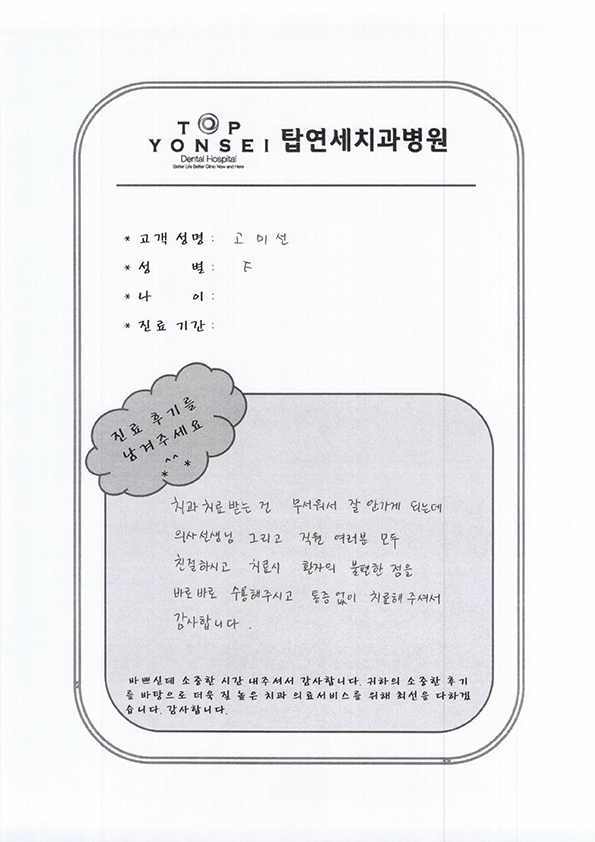 TOP
YONSEI 탑연세치과병원
Dental Hospital
Better Life Better Clinic Now and Here
* 고객성명 : 고 미 선
* 성 별 : F
* 나 이 :
* 진료 기간 :
진료 후기를
남겨주세요
^^
* *
치과치료 받는 건 무서워서 잘 안가게 되는데
의사선생님 그리고 직원 여러분 모두
친절하시고 치료시 환자의 불편한 점을
바로바로 수용해주시고 통증없이 치료해 주셔서
감사합니다.
바쁘신데 소중한 시간 내주셔서 감사합니다. 귀하의 소중한 후기
를 바탕으로 더욱 질 높은 치과 의료서비스를 위해 최선을 다하겠
습니다. 감사합니다.